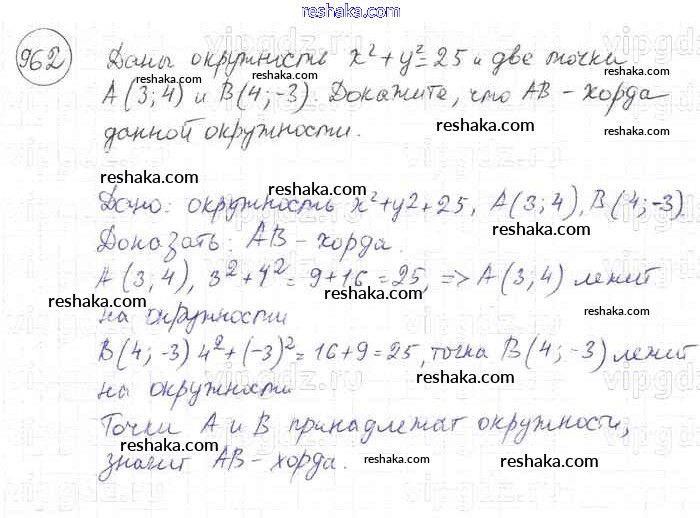 reshaka.com
962 Даны окружность x²+y²=25 и две точки
reshaka.com reshaka.com
A(3;4) и B(4;-3). Докажите, что AB - хорда
данной окружности.
reshaka.com reshaka.com
reshaka.com
reshaka.com
Дано: окружность x²+y2+25, A(3;4), B(4;-3).
reshaka.com
Доказать: AB - хорда.
reshaka.com
A(3;4), 3²+4²=9+16=25, => A(3;4) лежит
reshaka.com reshaka.com
на окружности
reshaka.com
B(4;-3) 4²+(-3)²=16+9=25, точка B(4;-3) лежит
reshaka.com
на окружности
reshaka.com
Точки A и B принадлежат окружности,
reshaka.com
значит AB - хорда.
reshaka.com reshaka.com